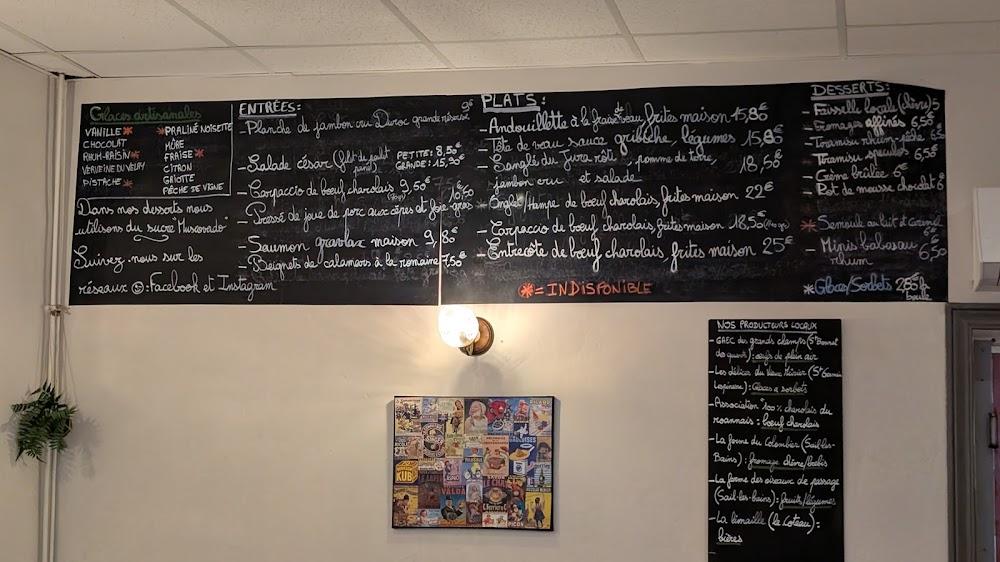 Glaces artisanales
VANILLE * * PRALINÉ NOISETTE
CHOCOLAT MÛRE
RHUM-RAISIN * FRAISE *
VERVEINE DU VELAY CITRON
PISTACHE * GRIOTTE
PÊCHE DE VIGNE
Dans nos desserts nous
utilisons du sucre "Muscovado"
Suivez-nous sur les
réseaux : Facebook et Instagram
ENTRÉES:
- Planche de jambon cru Duroc grande réserve 9€
- Salade césar (filet de poulet pané) PETITE: 8,50€
GRANDE: 15,90€
- Carpaccio de bœuf charolais 9,50€
- Pressé de joue de porc aux cèpes et foie-gras 10,50
- Saumon gravlax maison 9,80€
- Beignets de calamars à la romaine 7,50€
PLATS:
- Andouillette à la fraise de veau frites maison 15,80€
- Tête de veau sauce gribiche, légumes 15,80€
- Sanglé du Jura rôti, pomme de terre, 18,50€
jambon cru et salade
- Onglet/Hampe de bœuf charolais, frites maison 22€
- Carpaccio de bœuf charolais, frites maison 18,50€
- Entrecôte de bœuf charolais, frites maison 25€
* = INDISPONIBLE
DESSERTS:
- Faisselle locale (chèvre) 5
- Fromages affinés 6,5€
- Tiramisu rhum 6,5€
- Tiramisu spéculos 6,5€
- Crème brûlée 6€
- Pot de mousse chocolat 6€
* - Semoule au lait et 6€
- Minis babas au
rhum 6,50€
* Glaces/Sorbets la
boule
NOS PRODUCTEURS LOCAUX
- GAEC des grands champs (St Bonnet
des quarts): œufs de plein air
- Les délices du vieux (St Germain
Lespinasse): Glaces & sorbets
- Association "100% charolais du
roannais: bœuf charolais
- La ferme du Colombier (Sail-les-
Bains): fromage chèvre/brebis
- La ferme des oiseaux de passage
(Sail-les-bains): fruits/légumes
- La limaille (le Coteau):
bières
KUB
VALDA
PICON